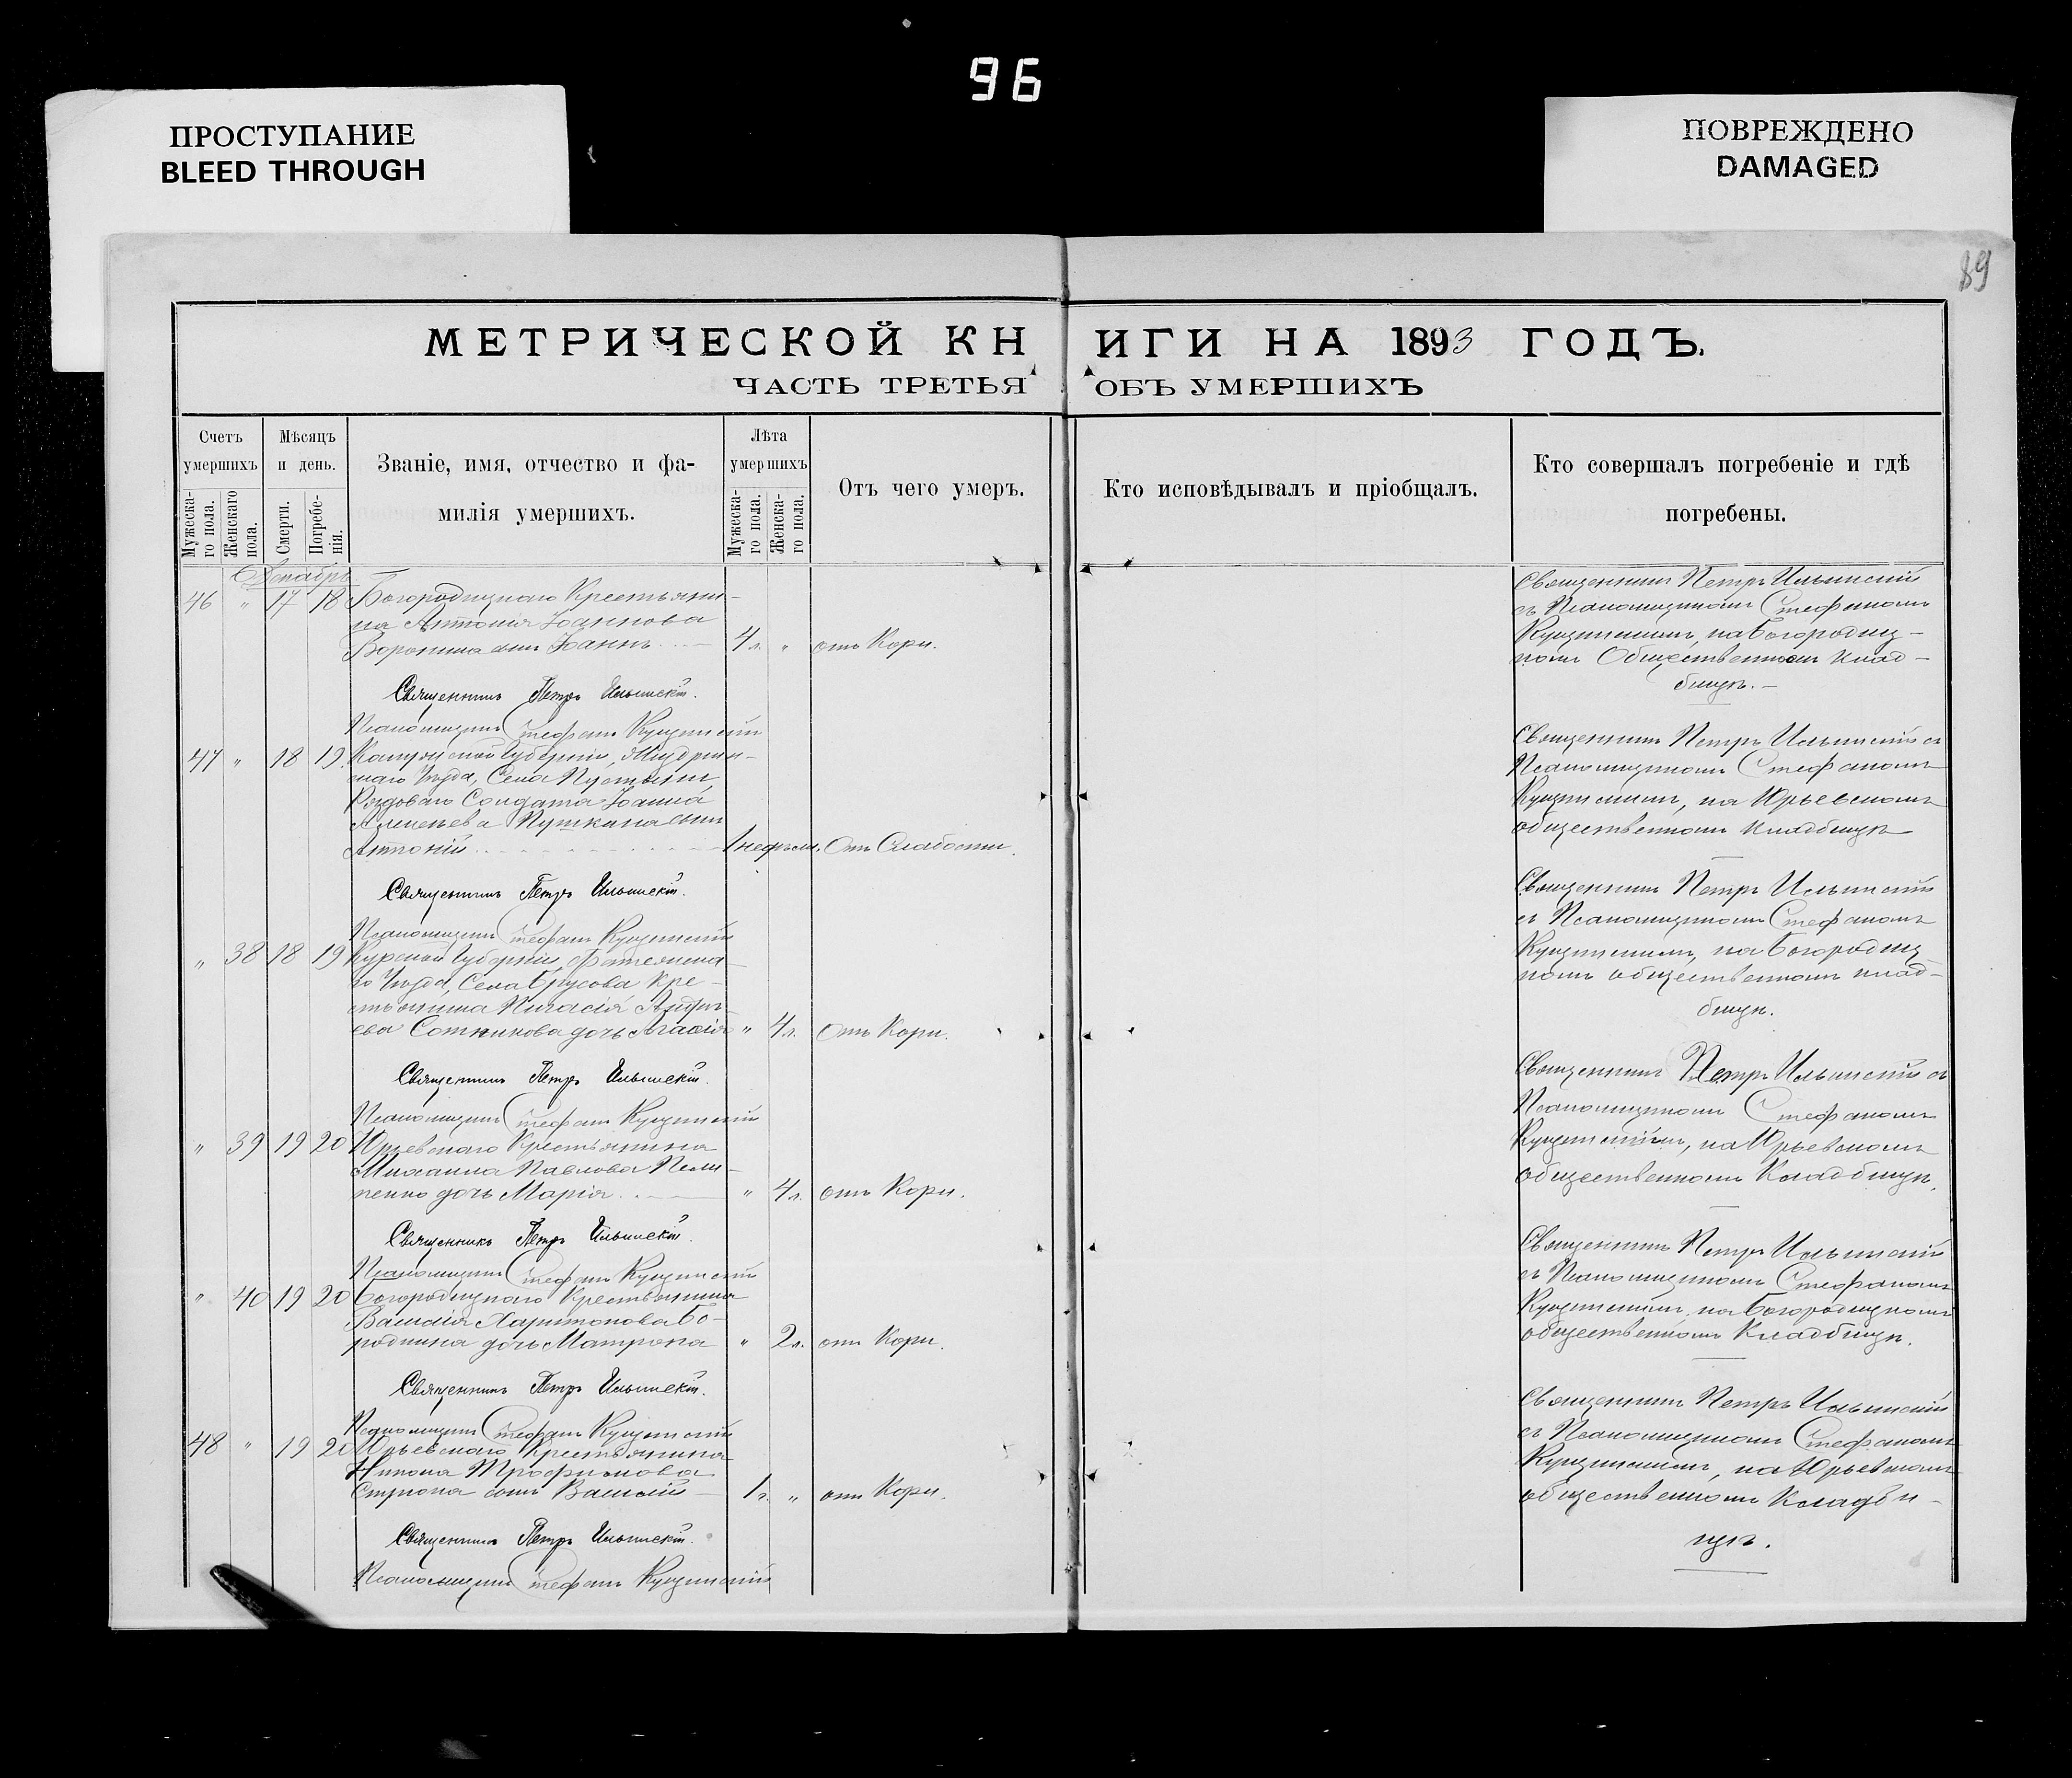 96
ПРОСТУПАНИЕ
BLEED THROUGH
ПОВРЕЖДЕНО
DAMAGED
89
МЕТРИЧЕСКОЙ КНИГИ НА 1893 ГОДЪ.
ЧАСТЬ ТРЕТЬЯ ОБЪ УМЕРШИХЪ
Счетъ умершихъ
Мужескаго пола.
Женскаго пола.
Мѣсяцъ и день.
Смерти.
Погребенія.
Званіе, имя, отчество и фамилія умершихъ.
Лѣта умершихъ
Мужескаго пола.
Женскаго пола.
Отъ чего умеръ.
Кто исповѣдывалъ и пріобщалъ.
Кто совершалъ погребеніе и гдѣ погребены.
Декабрь
46 " 17 18 Богородицкаго Крестьяни-
на Антонія Іоаннова
Воронина сынъ Іоаннъ 4 л. " отъ Кори.
Священникъ Петръ Ильинскій
съ Псаломщикомъ Стефаномъ
на Богородиц-
комъ Общественномъ клад-
бищѣ. —
Священникъ Петръ Ильинскій.
Псаломщикъ Стефанъ
47 " 18 19 Калужской Губерніи, Жиздрин-
скаго Уѣзда, Села Пустыни
Рядоваго Солдата Іоанна
Алексѣева Пушкина сынъ
Антоній 1 недѣли. Отъ Слабости.
Священникъ Петръ Ильинскій съ
Псаломщикомъ Стефаномъ
на Юрьевскомъ
общественномъ кладбищѣ
Священникъ Петръ Ильинскій.
Псаломщикъ Стефанъ
" 38 18 19 Курской Губерніи, Фатежска-
го Уѣзда, Села Брусова Кре-
стьянина Андре-
ева Сотникова дочь " 4 л. Отъ Кори.
Священникъ Петръ Ильинскій
съ Псаломщикомъ Стефаномъ
на Богородиц-
комъ общественномъ клад-
бищѣ.
Священникъ Петръ Ильинскій.
Псаломщикъ Стефанъ
" 39 19 20 Юрьевскаго Крестьянина
Михаила Павлова
дочь Марія " 4 л. отъ Кори.
Священникъ Петръ Ильинскій съ
Псаломщикомъ Стефаномъ
на Юрьевскомъ
общественномъ Кладбищѣ.
Священникъ Петръ Ильинскій.
Псаломщикъ Стефанъ
" 40 19 20 Богородицкаго Крестьянина
Василія Харитонова Бо-
родкина дочь Матрона " 2 л. отъ Кори.
Священникъ Петръ Ильинскій
съ Псаломщикомъ Стефаномъ
на Богородицкомъ
общественномъ Кладбищѣ.
Священникъ Петръ Ильинскій.
Псаломщикъ Стефанъ
48 " 19 20 Юрьевскаго Крестьянина
Никона Трофимова
сынъ Василій 1 г. " отъ Кори.
Священникъ Петръ Ильинскій
съ Псаломщикомъ Стефаномъ
на Юрьевскомъ
общественномъ Кладби-
щѣ.
Священникъ Петръ Ильинскій.
Псаломщикъ Стефанъ